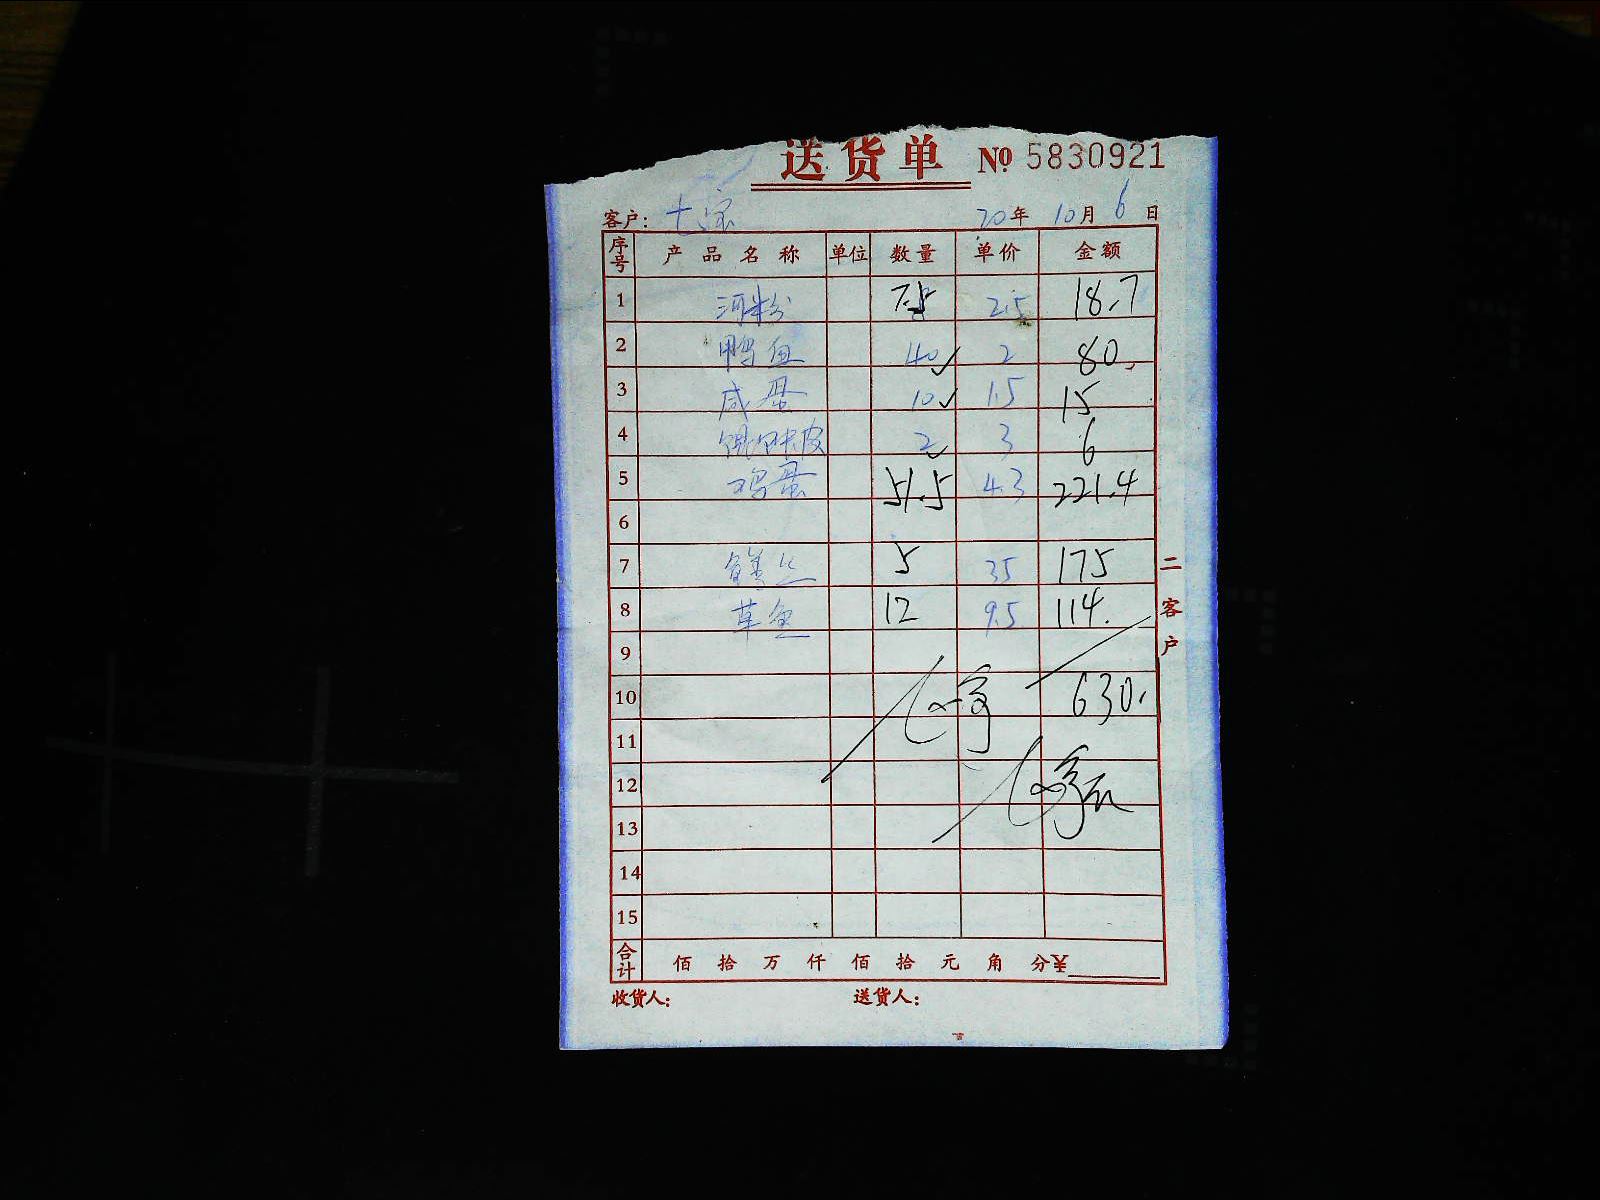 送货单 № 5830921
客户: 七宗 20年 10月 6日
序号 产品名称 单位 数量 单价 金额
1 河粉 7.5 2.5 18.7
2 鸭血 40 2 80
3 咸蛋 10 1.5 15
4 馄饨皮 2 3 6
5 鸡蛋 51.5 4.3 221.4
6
7 鳝丝 5 35 175
8 草鱼 12 9.5 114.
9
10 630.
11
12
13
14
15
合计 佰 拾 万 仟 佰 拾 元 角 分¥
收货人: 送货人:
二客户